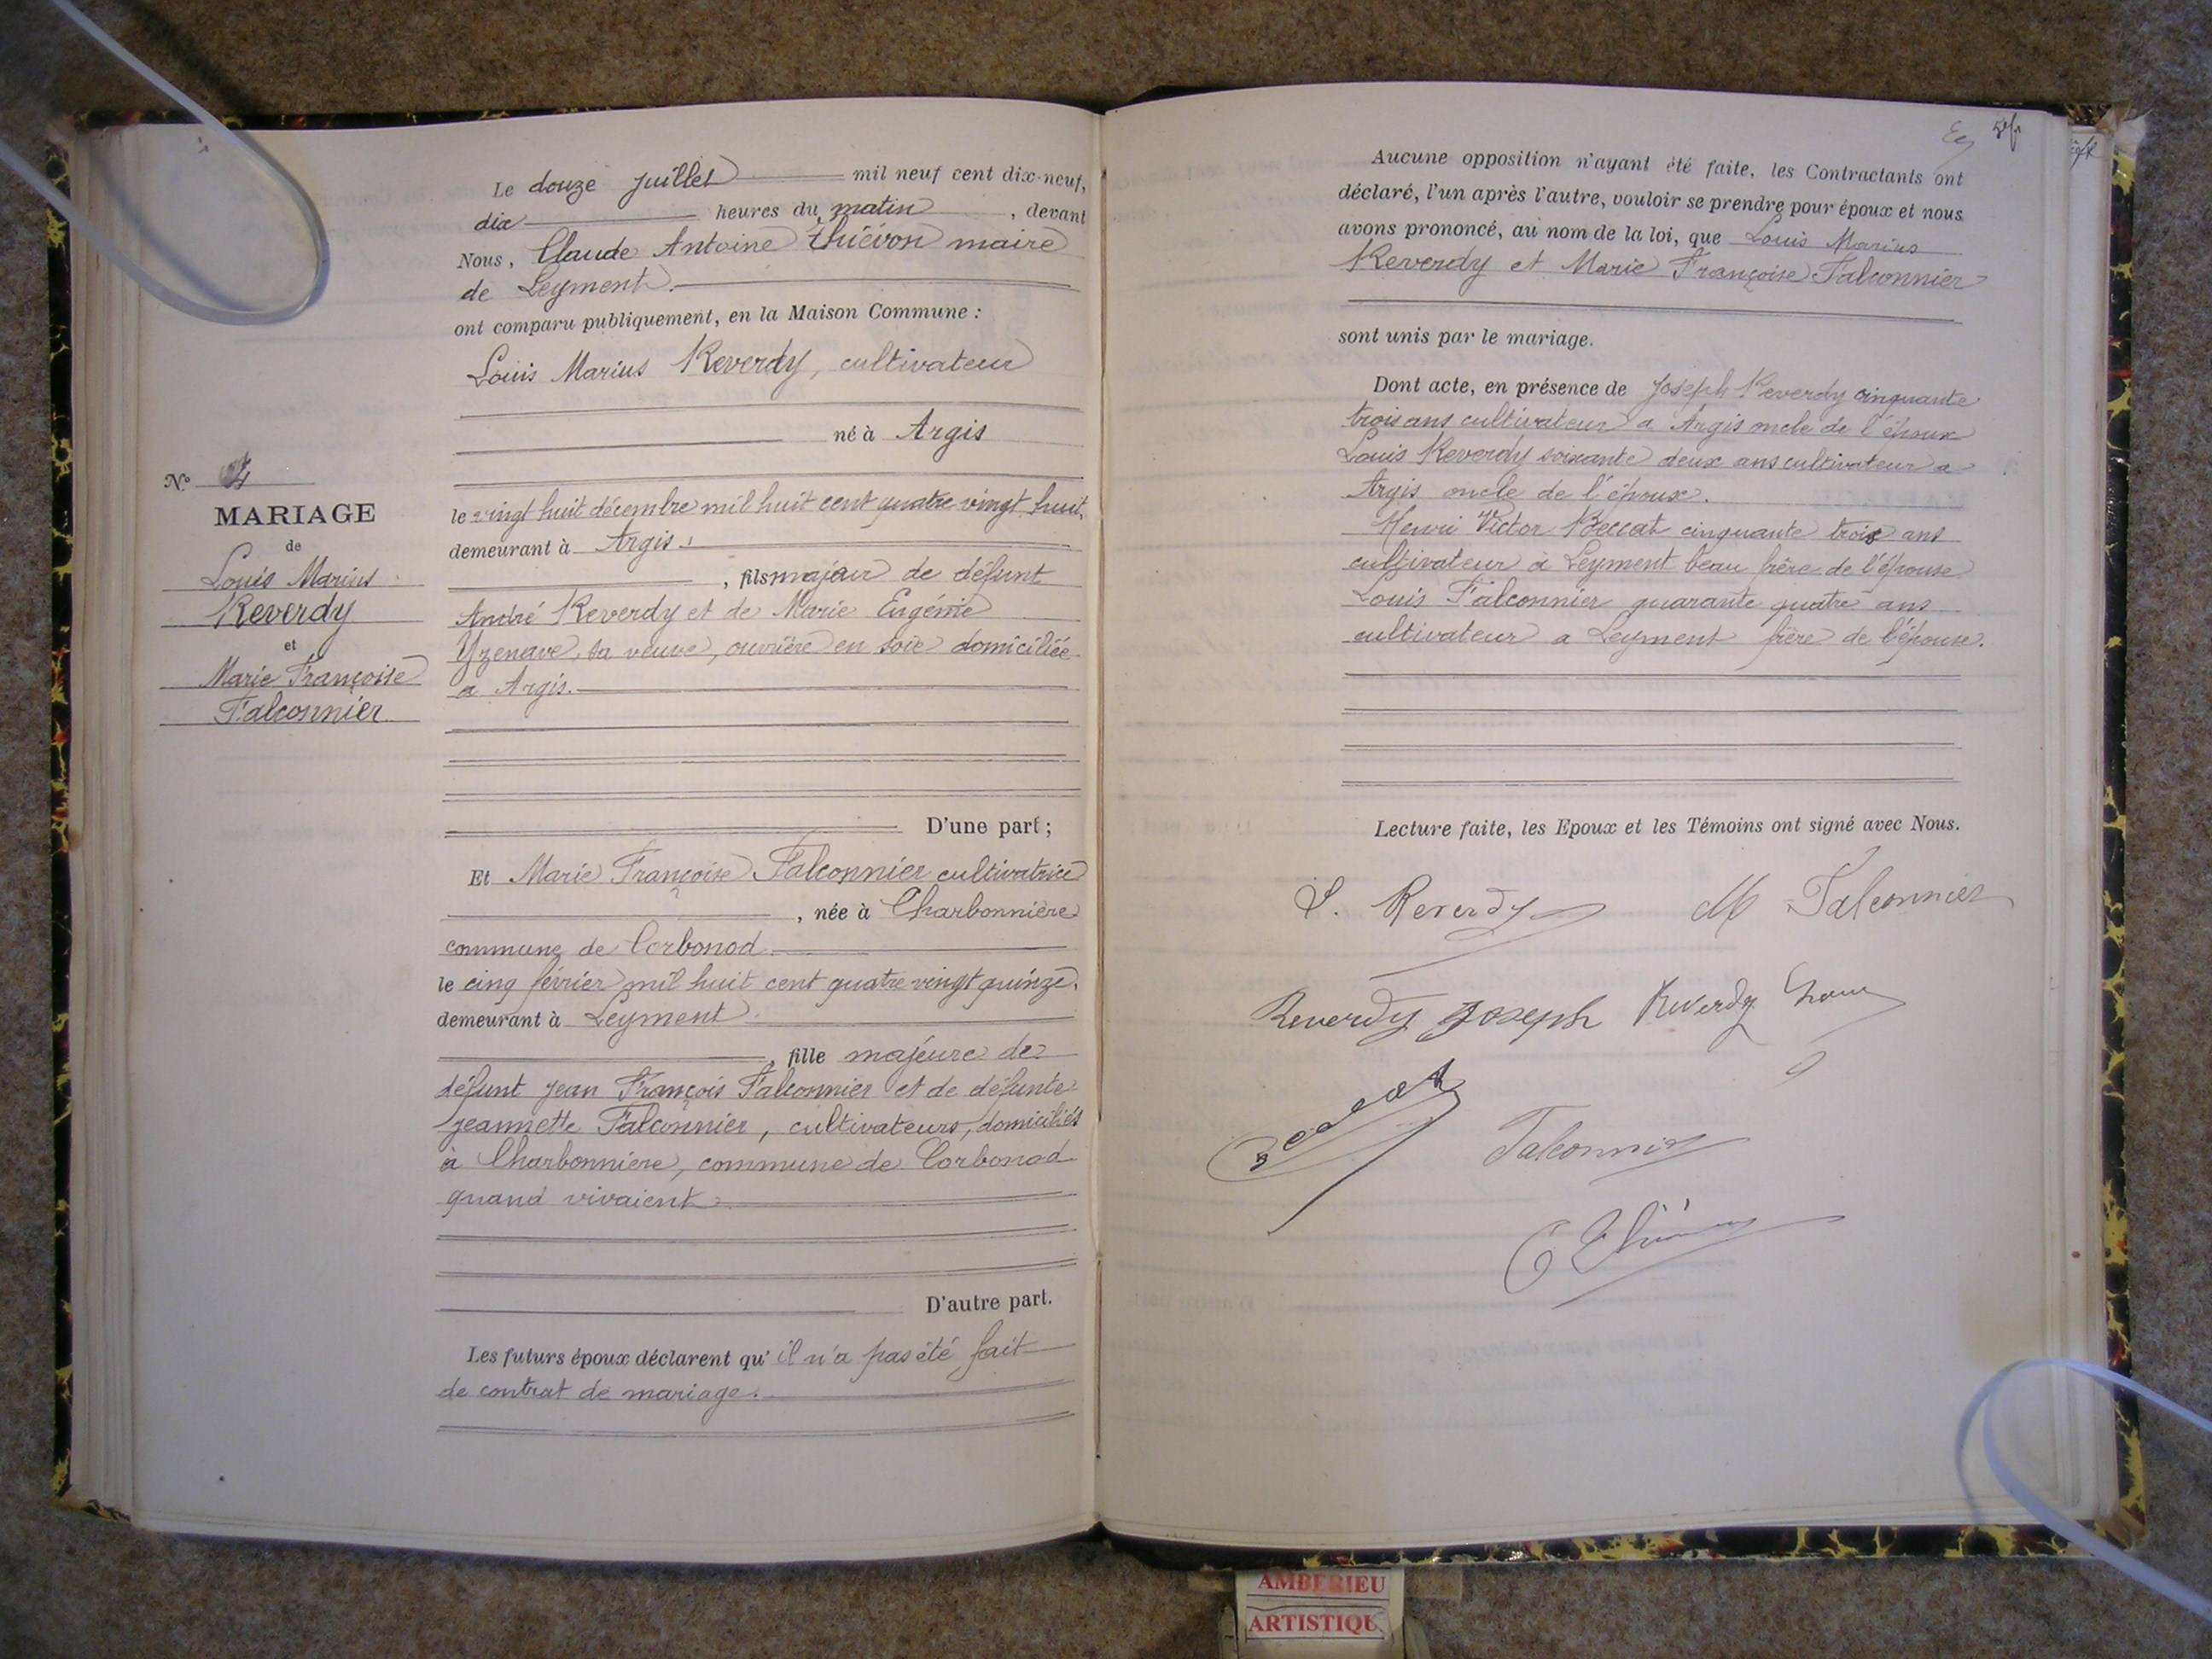 N° 4
MARIAGE
de
Louis Marius
Reverdy
et
Marie Françoise
Falconnier
Le douze juillet mil neuf cent dix-neuf,
dix heures du matin, devant
Nous, Claude Antoine Thiévon maire
de Leyment.
ont comparu publiquement, en la Maison Commune :
Louis Marius Reverdy, cultivateur
né à Argis
le vingt huit décembre mil huit cent quatre vingt huit,
demeurant à Argis.
, fils majeur de défunt
André Reverdy et de Marie Eugénie
Yzenave, sa veuve, ouvrière en soie domiciliée
a Argis.
D'une part ;
Et Marie Françoise Falconnier cultivatrice
, née à Charbonnière
commune de Corbonod
le cinq février mil huit cent quatre vingt quinze.
demeurant à Leyment
, fille majeure de
défunt Jean François Falconnier et de défunte
Jeannette Falconnier, cultivateurs, domiciliés
à Charbonnière, commune de Corbonod
quand vivaient
D'autre part.
Les futurs époux déclarent qu'il n'a pas été fait
de contrat de mariage.
Aucune opposition n'ayant été faite, les Contractants ont
déclaré, l'un après l'autre, vouloir se prendre pour époux et nous
avons prononcé, au nom de la loi, que Louis Marius
Reverdy et Marie Françoise Falconnier
sont unis par le mariage.
Dont acte, en présence de Joseph Reverdy cinquante
trois ans cultivateur a Argis oncle de l'époux
Louis Reverdy soixante deux ans cultivateur a
Argis oncle de l'époux.
Henri Victor Beccat cinquante trois ans
cultivateur à Leyment beau frère de l'épouse
Louis Falconnier quarante quatre ans
cultivateur a Leyment frère de l'épouse.
Lecture faite, les Epoux et les Témoins ont signé avec Nous.
L. Reverdy M Falconnier
Reverdy Joseph Reverdy
Falconnier
AMBERIEU
ARTISTIQUE